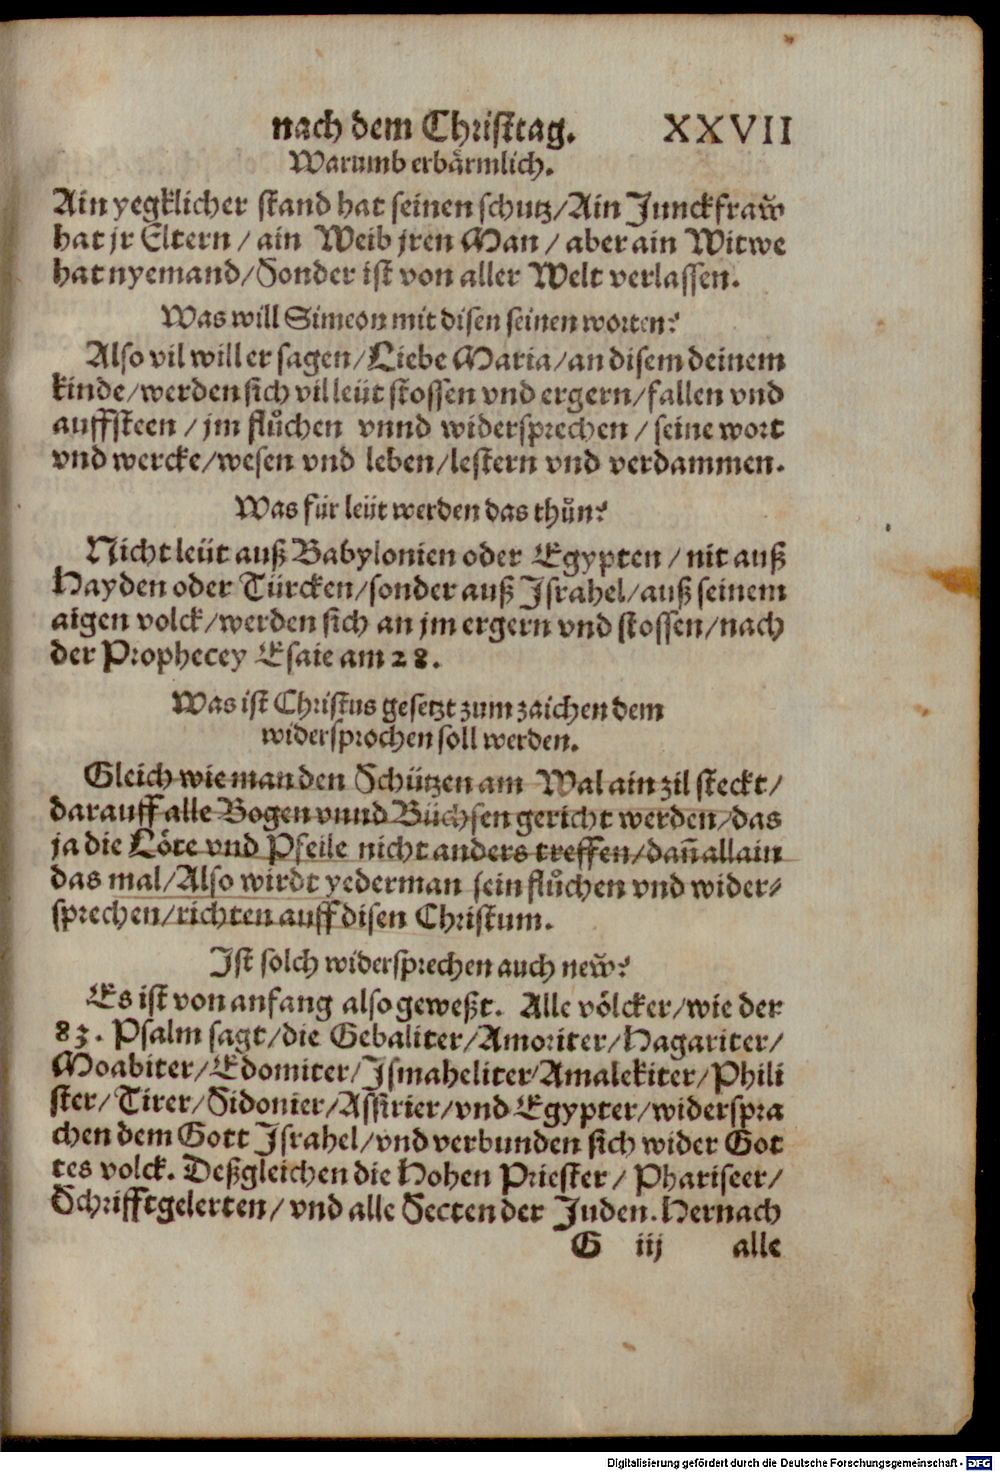 nach dem Christtag. XXVII
Warumb erbärmlich.
Ain yegklicher stand hat seinen schutz/Ain Junckfraw̋
hat jr Eltern / ain Weib jren Man / aber ain Witwe
hat nyemand/Sonder ist von aller Welt verlassen.
Was will Simeon mit disen seinen worten?
Also vil will er sagen/Liebe Maria/an disem deinem
kinde/werden sich vil leüt stossen vnd ergern/fallen vnd
auffsteen / jm flůchen vnnd widersprechen / seine wort
vnd wercke/wesen vnd leben/lestern vnd verdammen.
Was für leüt werden das thůn?
Nicht leüt auß Babylonien oder Egypten / nit auß
Hayden oder Türcken/sonder auß Israhel/auß seinem
aigen volck/werden sich an jm ergern vnd stossen/nach
der Prophecey Esaie am 28.
Was ist Christus gesetzt zum zaichen dem
widersprochen soll werden.
Gleich wie man den Schützen am Wal ain zil steckt/
darauff alle Bogen vnnd Büchsen gericht werden/das
ja die Löte vnd Pfeile nicht anders treffen/dañ allain
das mal/Also wirdt yederman sein flůchen vnd wider⸗
sprechen/richten auff disen Christum.
Ist solch widersprechen auch new̋?
Es ist von anfang also geweßt. Alle völcker/wie der
83. Psalm sagt/die Gebaliter/Amoriter/Hagariter/
Moabiter/Edomiter/Ismaheliter/Amalekiter/Phili
ster/Tirer/Sidonier/Assirier/vnd Egypter/widerspra
chen dem Gott Israhel/vnd verbunden sich wider Got
tes volck. Deßgleichen die Hohen Priester / Phariseer/
Schrifftgelerten/ vnd alle Secten der Juden. Hernach
G iij alle
Digitalisierung gefördert durch die Deutsche Forschungsgemeinschaft - DFG